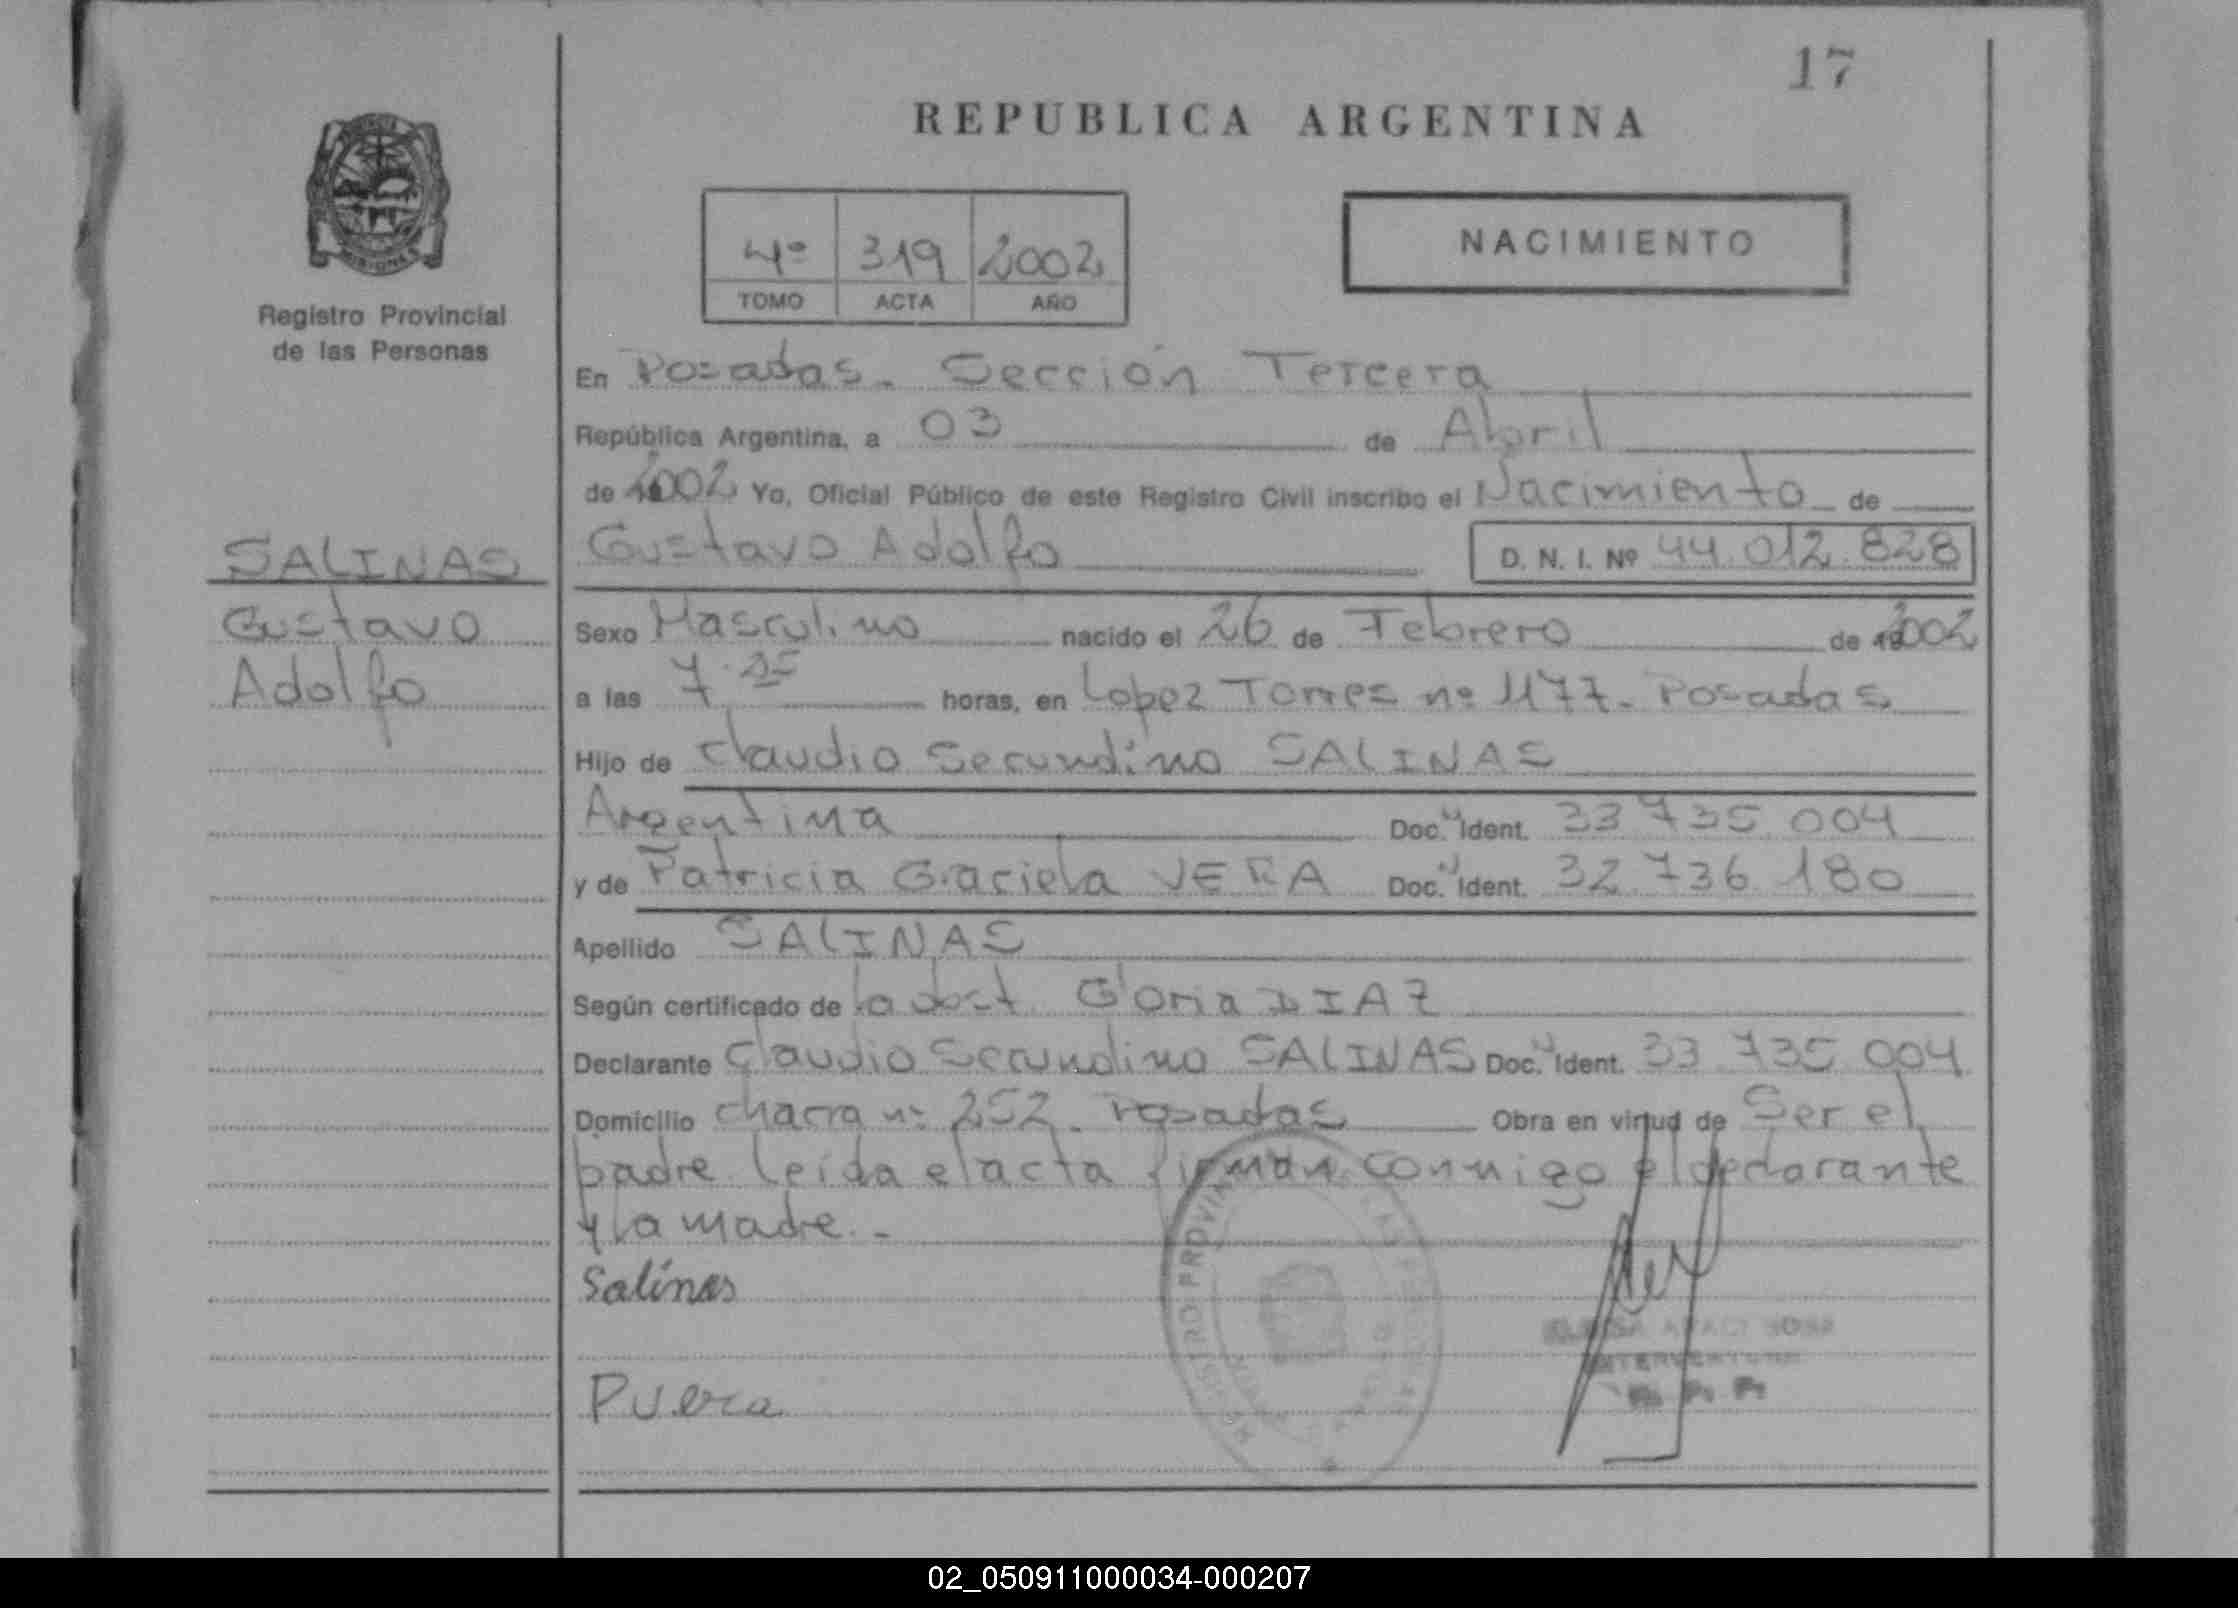 17
REPUBLICA ARGENTINA
Registro Provincial
de las Personas
4º 319 2002
TOMO ACTA AÑO
NACIMIENTO
En Posadas. Sección Tercera
República Argentina, a 03 de Abril
de 2002 Yo, Oficial Público de este Registro Civil inscribo el Nacimiento de
SALINAS
Gustavo
Adolfo
Gustavo Adolfo D. N. I. Nº 44.012.828
Sexo Masculino nacido el 26 de Febrero de 2002
a las 7. horas, en Lopez Torres nº 1177. Posadas
Hijo de Claudio Secundino SALINAS
Argentina Doc. Ident. 33 735 004
y de Patricia Graciela VERA Doc. Ident. 32.736.180
Apellido SALINAS
Según certificado de la obst. Gloria DIAZ
Declarante Claudio Secundino SALINAS Doc. Ident. 33 735 004
Domicilio chacra nº 252. Posadas Obra en virtud de Ser el
padre. Leída el acta firman conmigo el declarante
y la madre.-
Salinas
PVera
REGISTRO PROVINCIAL
R. P. P.
02_050911000034-000207